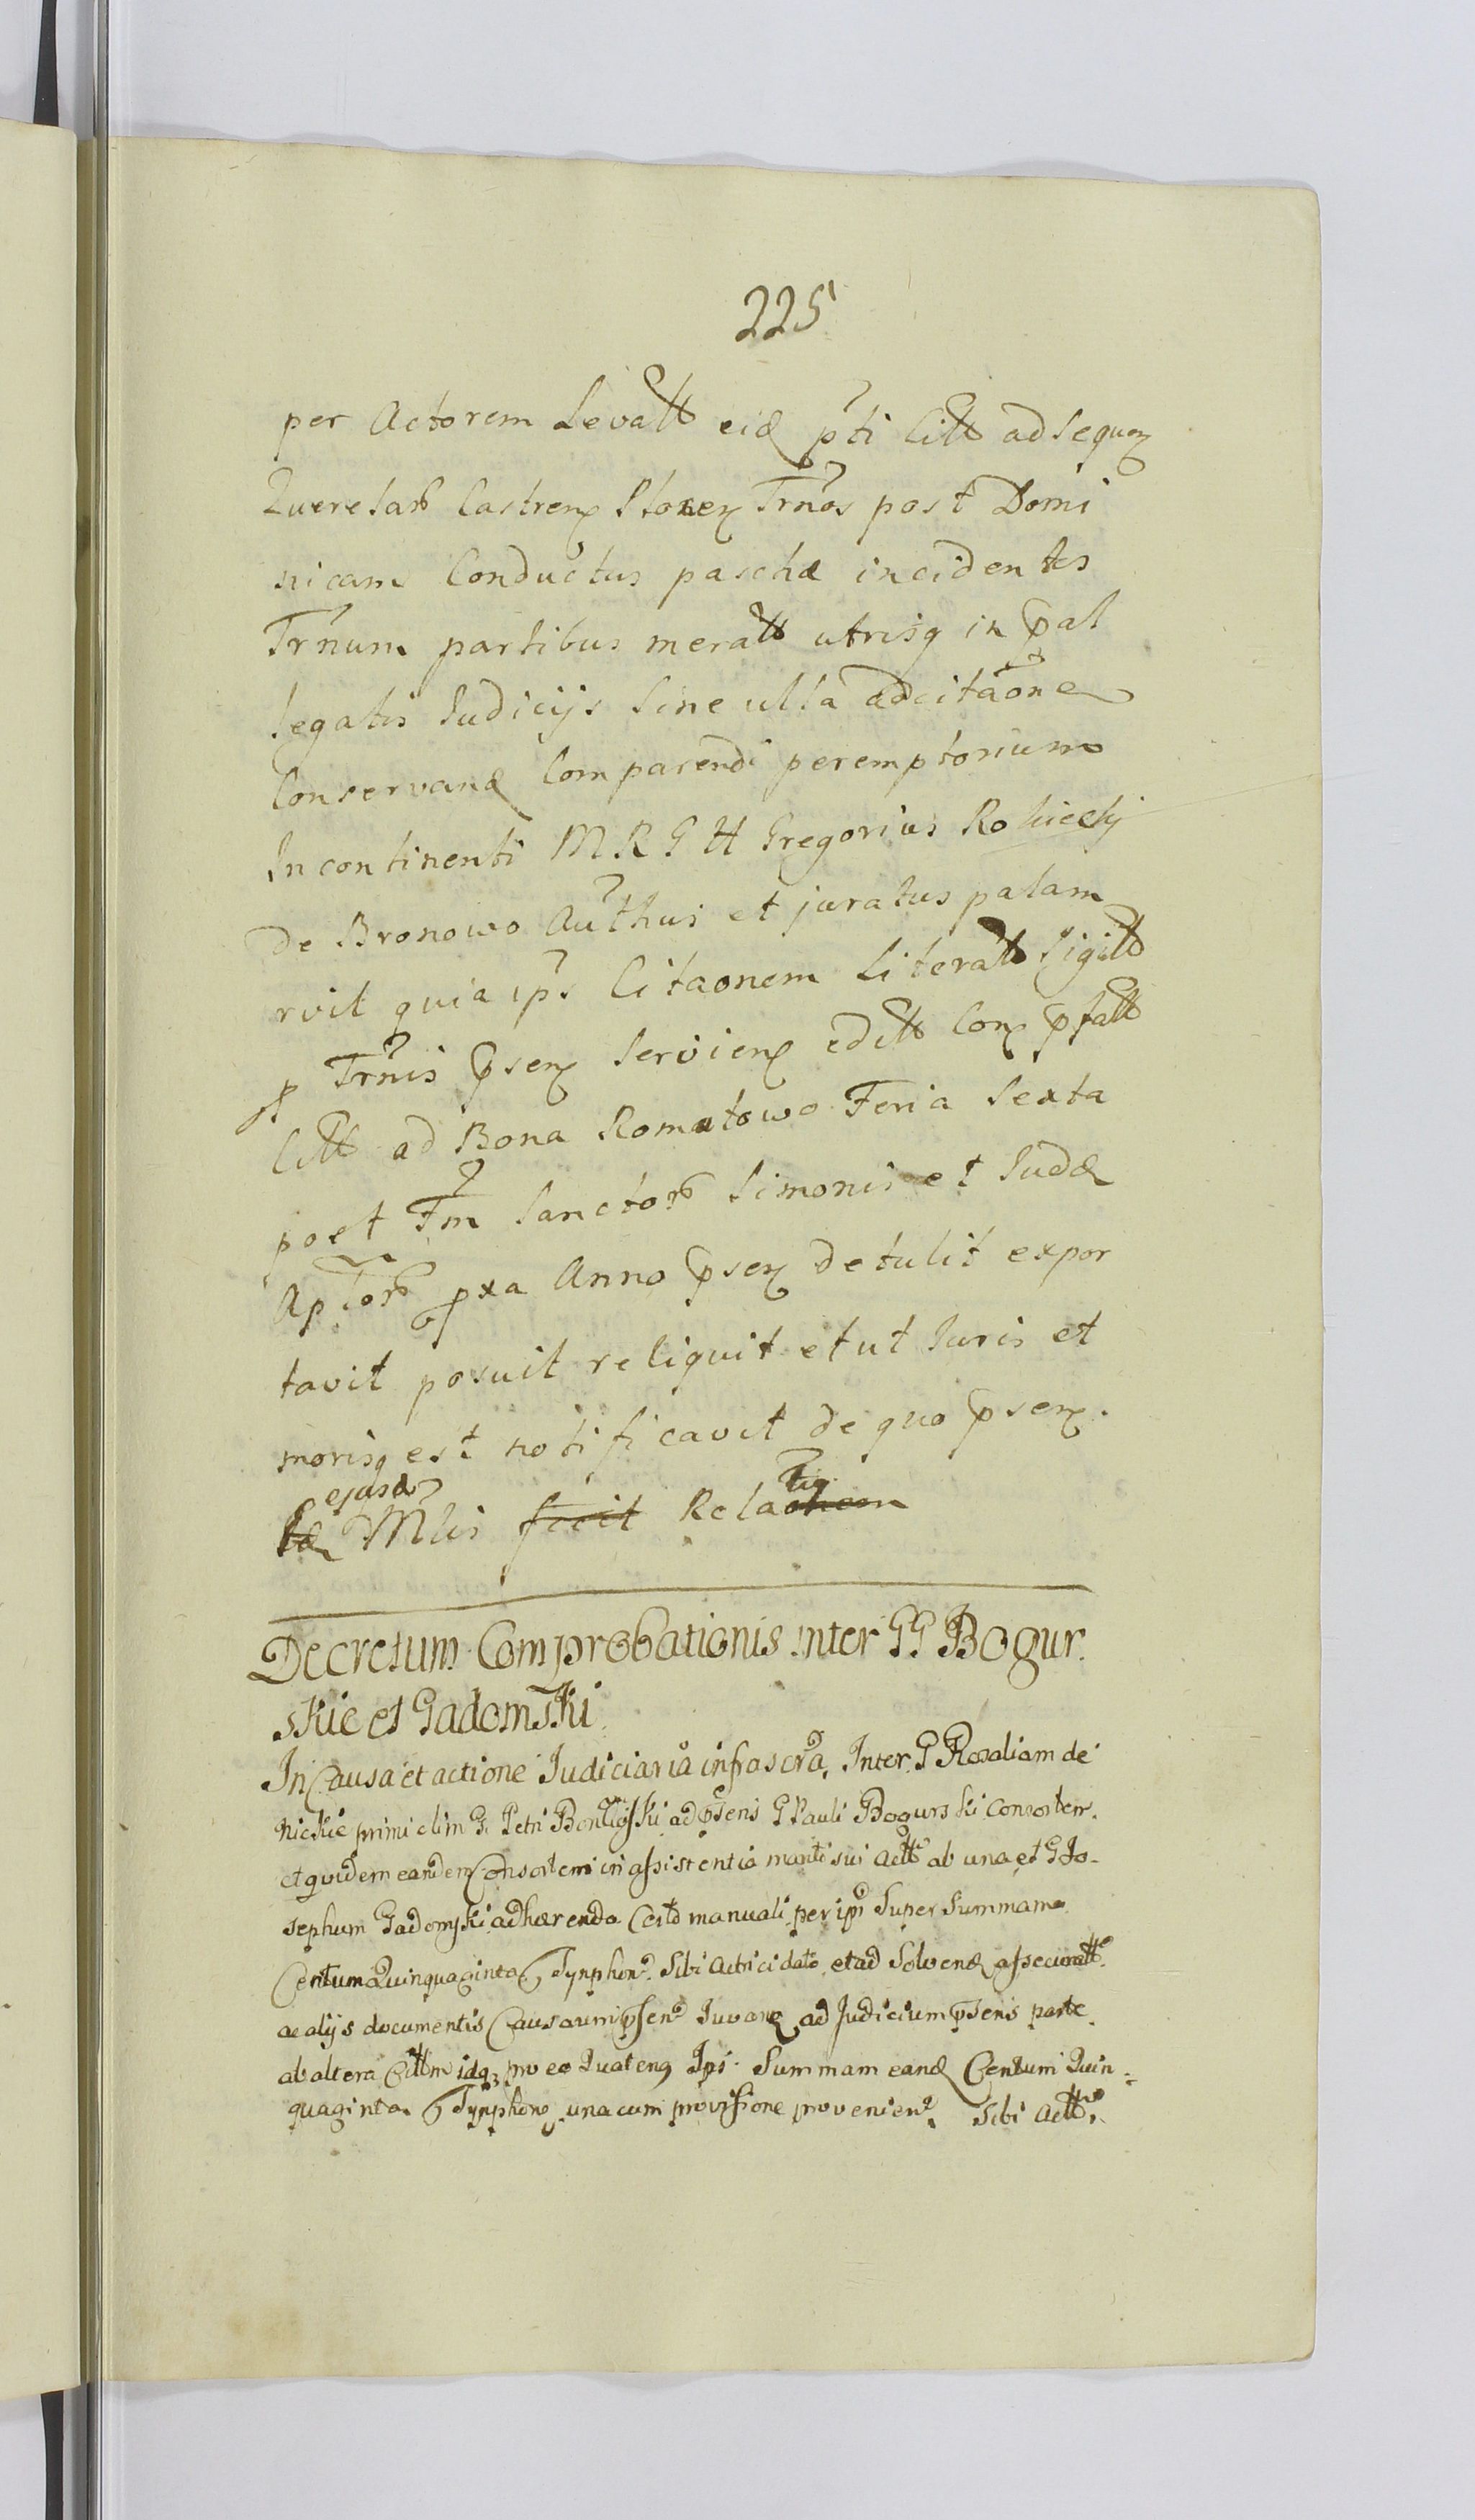 225
per Actorem Levatt eid pti Citt ad sequen
Querelar Castren Stonen Trnos post Domi
nicam Conductus paschæ incidentes
Trnum partibus meratt utrisq in pal
legatis Judicijs Sine ulla adcitaone
Conservand Comparendi peremptorium
Incontinenti MRGH Gregorius Rokicckj
de Bronowo Authus et juratus palam
rvit quia ips Citaonem Literatt Sigill
p Trnis psen Servien editt Con pfatt
Citt ad Bona Romatowo Feria Sexta
post Fm Sanctor Simonis et Judæ
Aptor pxa Anno psen detulit expor
tavit posuit reliquit et ut Juris et
morisq est notificavit de quo psen.
ejusd
Mlis fecit Relaonem
Decretum Comprobationis inter GG Bogur.
skie et Gadomski
In Causa et actione Judiciaria infrascra, Inter G Rosaliam de
Nickie primi olim G. Petri ad psens G Pauli Bogurski consortem.
et quidem eandem Consortem in assistentia mariti sui Actt ab una et G Jo-
sephum Gadomski adhærendo Certo manuali per ips Super Summam
Centum Quinquaginta Tynphon. Sibi Actrici dato et ad Solvend assecuratt
ac alijs documentis Causam psen Juvan ad Judicium psens parte
ab altera Cittm idq pro eo Quatenq Ips Summam eand Centum Quin-
quaginta Tynphon una cum provisione provenien. Sibi Actt